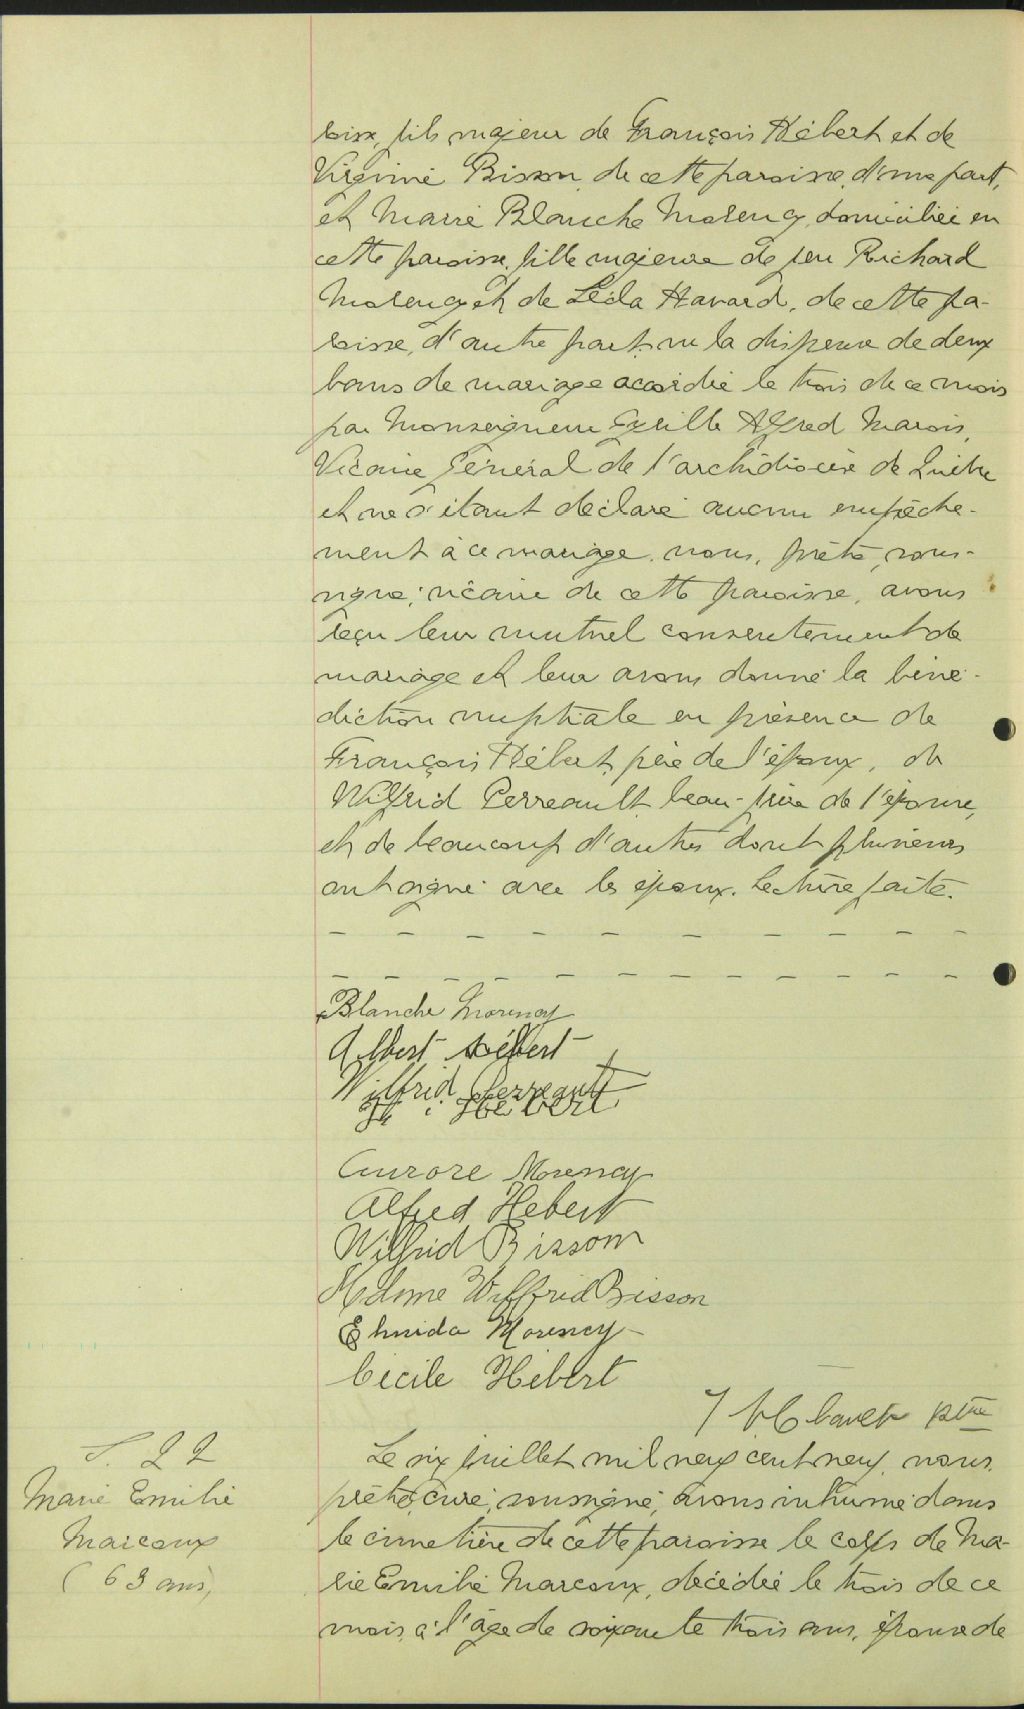 roisse, fils majeur de François Hébert et de
Virginie Bisson, de cette paroisse, d'une part,
et Marie Blanche Morency, domiciliée en
cette paroisse, fille majeure de feu Richard
Morency et de Léda Havard, de cette pa-
roisse, d'autre part, vu la dispense de deux
bans de mariage accordée le trois de ce mois
par Monseigneur Cyrille Alfred Marois,
Vicaire Général de l'archidiocèse de Québec
et ne s'étant déclaré aucun empêche-
ment à ce mariage, nous, prêtre, sous-
signé, vicaire de cette paroisse, avons
reçu leur mutuel consentement de
mariage et leur avons donné la béné-
diction nuptiale en présence de
François Hébert, père de l'époux, de
Wilfrid Perreault, beau-frère de l'épouse,
et de beaucoup d'autres dont plusieurs
ont signé avec les époux. Lecture faite.
Blanche Morency
Albert Hébert
Wilfrid Perreault
Hébert
Aurore Morency
Alfred Hebert
Wilfrid Bisson
Mdme Wilffrid Bisson
Elmida Morency
Cécile Hébert
ptre
S. 22
Marie Emilie
Marcoux
(63 ans)
Le six juillet mil neuf cent neuf, nous,
prêtre, curé, soussigné, avons inhumé dans
le cimetière de cette paroisse le corps de Ma-
rie Emilie Marcoux, décédée le trois de ce
mois, à l'âge de soixante trois ans, épouse de